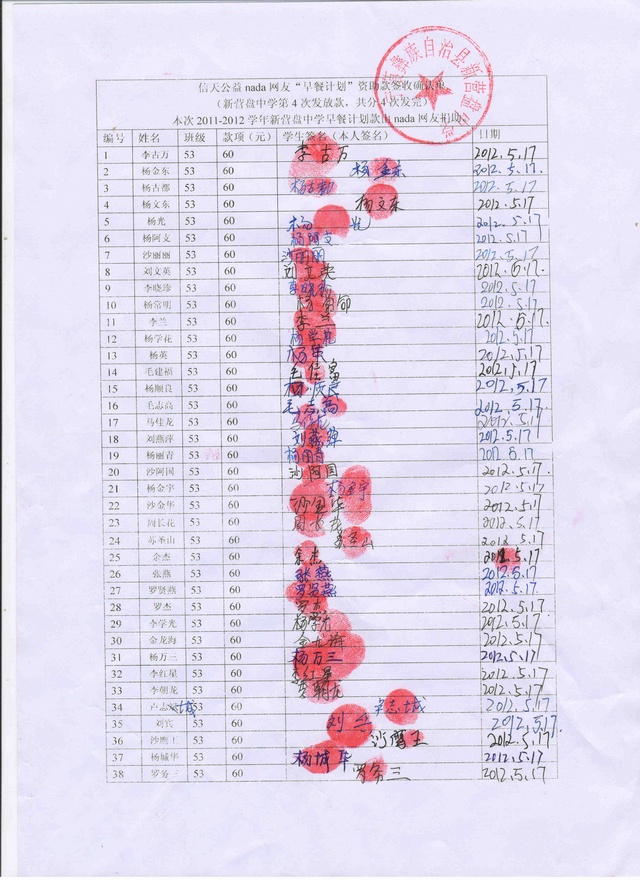 信天公益nada网友“早餐计划”资助款签收确认单
(新营盘中学第4次发放款，共分4次发完)
本次2011-2012学年新营盘中学早餐计划款由nada网友捐助
编号 姓名 班级 款项（元） 学生签名（本人签名） 日期
1 李古万 53 60 李古万 2012.5.17
2 杨金东 53 60 杨金东 2012.5.17
3 杨古都 53 60 杨古都 2012.5.17
4 杨文东 53 60 杨文东 2012.5.17
5 杨光 53 60 杨光 2012.5.17
6 杨阿支 53 60 杨阿支 2012.5.17
7 沙丽丽 53 60 沙丽丽 2012.5.17
8 刘文英 53 60 刘文英 2012.5.17
9 李晓珍 53 60 李晓珍 2012.5.17
10 杨常明 53 60 2012.5.17
11 李兰 53 60 李兰 2012.5.17
12 杨学花 53 60 杨学花 2012.5.17
13 杨英 53 60 杨英 2012.5.17
14 毛建福 53 60 2012.5.17
15 杨顺良 53 60 杨顺良 2012.5.17
16 毛志高 53 60 毛志高 2012.5.17
17 马佳龙 53 60 2012.5.17
18 刘燕萍 53 60 刘燕萍 2012.5.17
19 杨丽青 53 60 杨丽青 2012.5.17
20 沙阿国 53 60 沙阿国 2012.5.17
21 杨金宇 53 60 杨金宇 2012.5.17
22 沙金华 53 60 沙金华 2012.5.17
23 周长花 53 60 2012.5.17
24 苏圣山 53 60 苏圣山 2012.5.17
25 余杰 53 60 余杰 2012.5.17
26 张燕 53 60 张燕 2012.5.17
27 罗贤燕 53 60 罗贤燕 2012.5.17
28 罗杰 53 60 罗杰 2012.5.17
29 李学光 53 60 2012.5.17
30 金龙海 53 60 金龙海 2012.5.17
31 杨万三 53 60 杨万三 2012.5.17
32 李红星 53 60 李红星 2012.5.17
33 李朝龙 53 60 李朝龙 2012.5.17
34 卢志城 53 60 2012.5.17
35 刘宾 53 60 2012.5.17
36 沙鹰王 53 60 沙鹰王 2012.5.17
37 杨城华 53 60 杨城华 2012.5.17
38 罗务三 53 60 罗务三 2012.5.17
彝族自治县新营盘